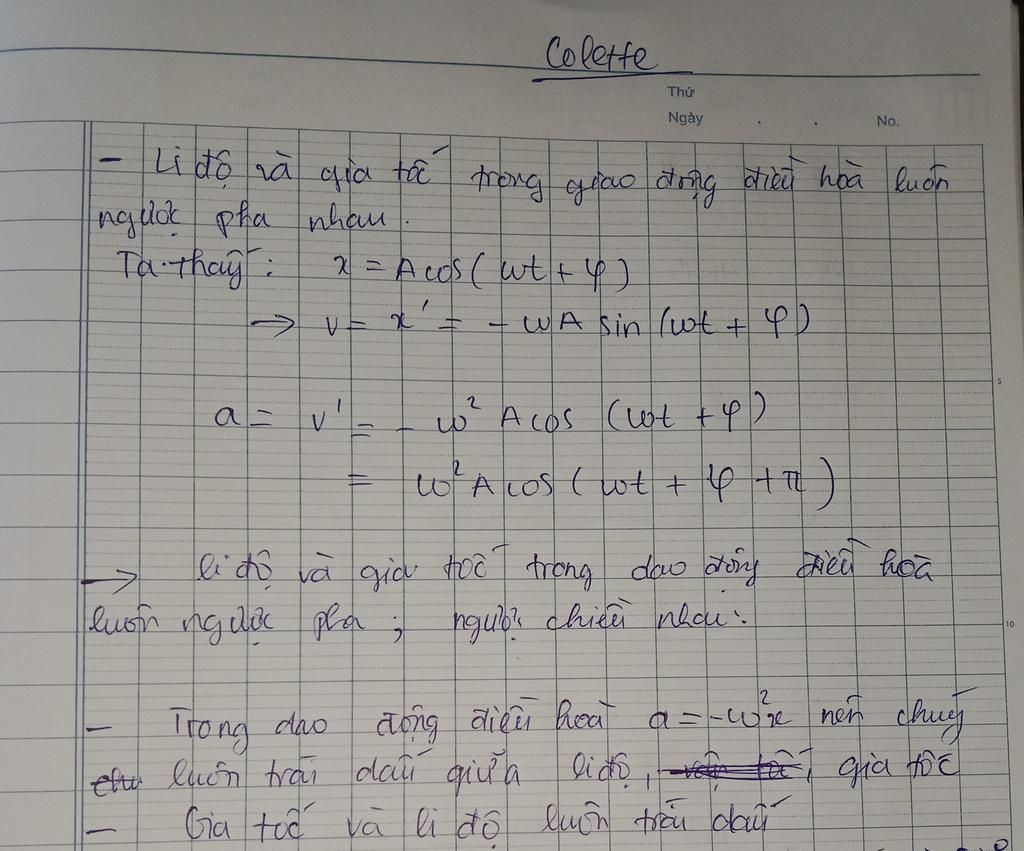 Colette
Thứ
Ngày . . No.
- Li độ và gia tốc trong giao động điều hoà luôn
ngược pha nhau.
Ta thấy: x = A cos (ωt + φ)
→ v = x' = - ωA sin (ωt + φ)
5
a = v' = - ω² A cos (ωt + φ)
= ω² A cos (ωt + φ + π)
→ li độ và gia tốc trong dao động điều hoà
luôn ngược pha; ngược chiều nhau.
10
- Trong dao động điều hoà a = -ω²x nên chúng
luôn trái dấu giữa li độ, gia tốc
- Gia tốc và li độ luôn trái dấu